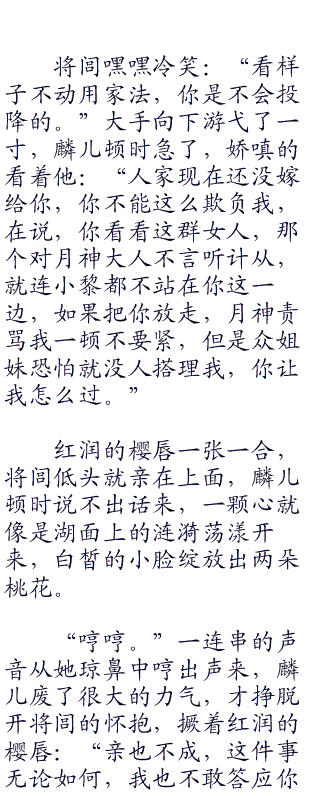 将闾嘿嘿冷笑：“看样
子不动用家法，你是不会投
降的。”大手向下游弋了一
寸，麟儿顿时急了，娇嗔的
看着他：“人家现在还没嫁
给你，你不能这么欺负我，
在说，你看看这群女人，那
个对月神大人不言听计从，
就连小黎都不站在你这一
边，如果把你放走，月神责
骂我一顿不要紧，但是众姐
妹恐怕就没人搭理我，你让
我怎么过。”
红润的樱唇一张一合，
将闾低头就亲在上面，麟儿
顿时说不出话来，一颗心就
像是湖面上的涟漪荡漾开
来，白皙的小脸绽放出两朵
桃花。
“哼哼。”一连串的声
音从她琼鼻中哼出声来，麟
儿废了很大的力气，才挣脱
开将闾的怀抱，撅着红润的
樱唇：“亲也不成，这件事
无论如何，我也不敢答应你